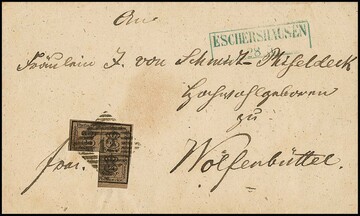 An
ESCHERSHAUSEN
Fräulein J. von Schmidt Phiseldeck
28
Hochwohlgeboren
zu
frei.
Wolfenbüttel.